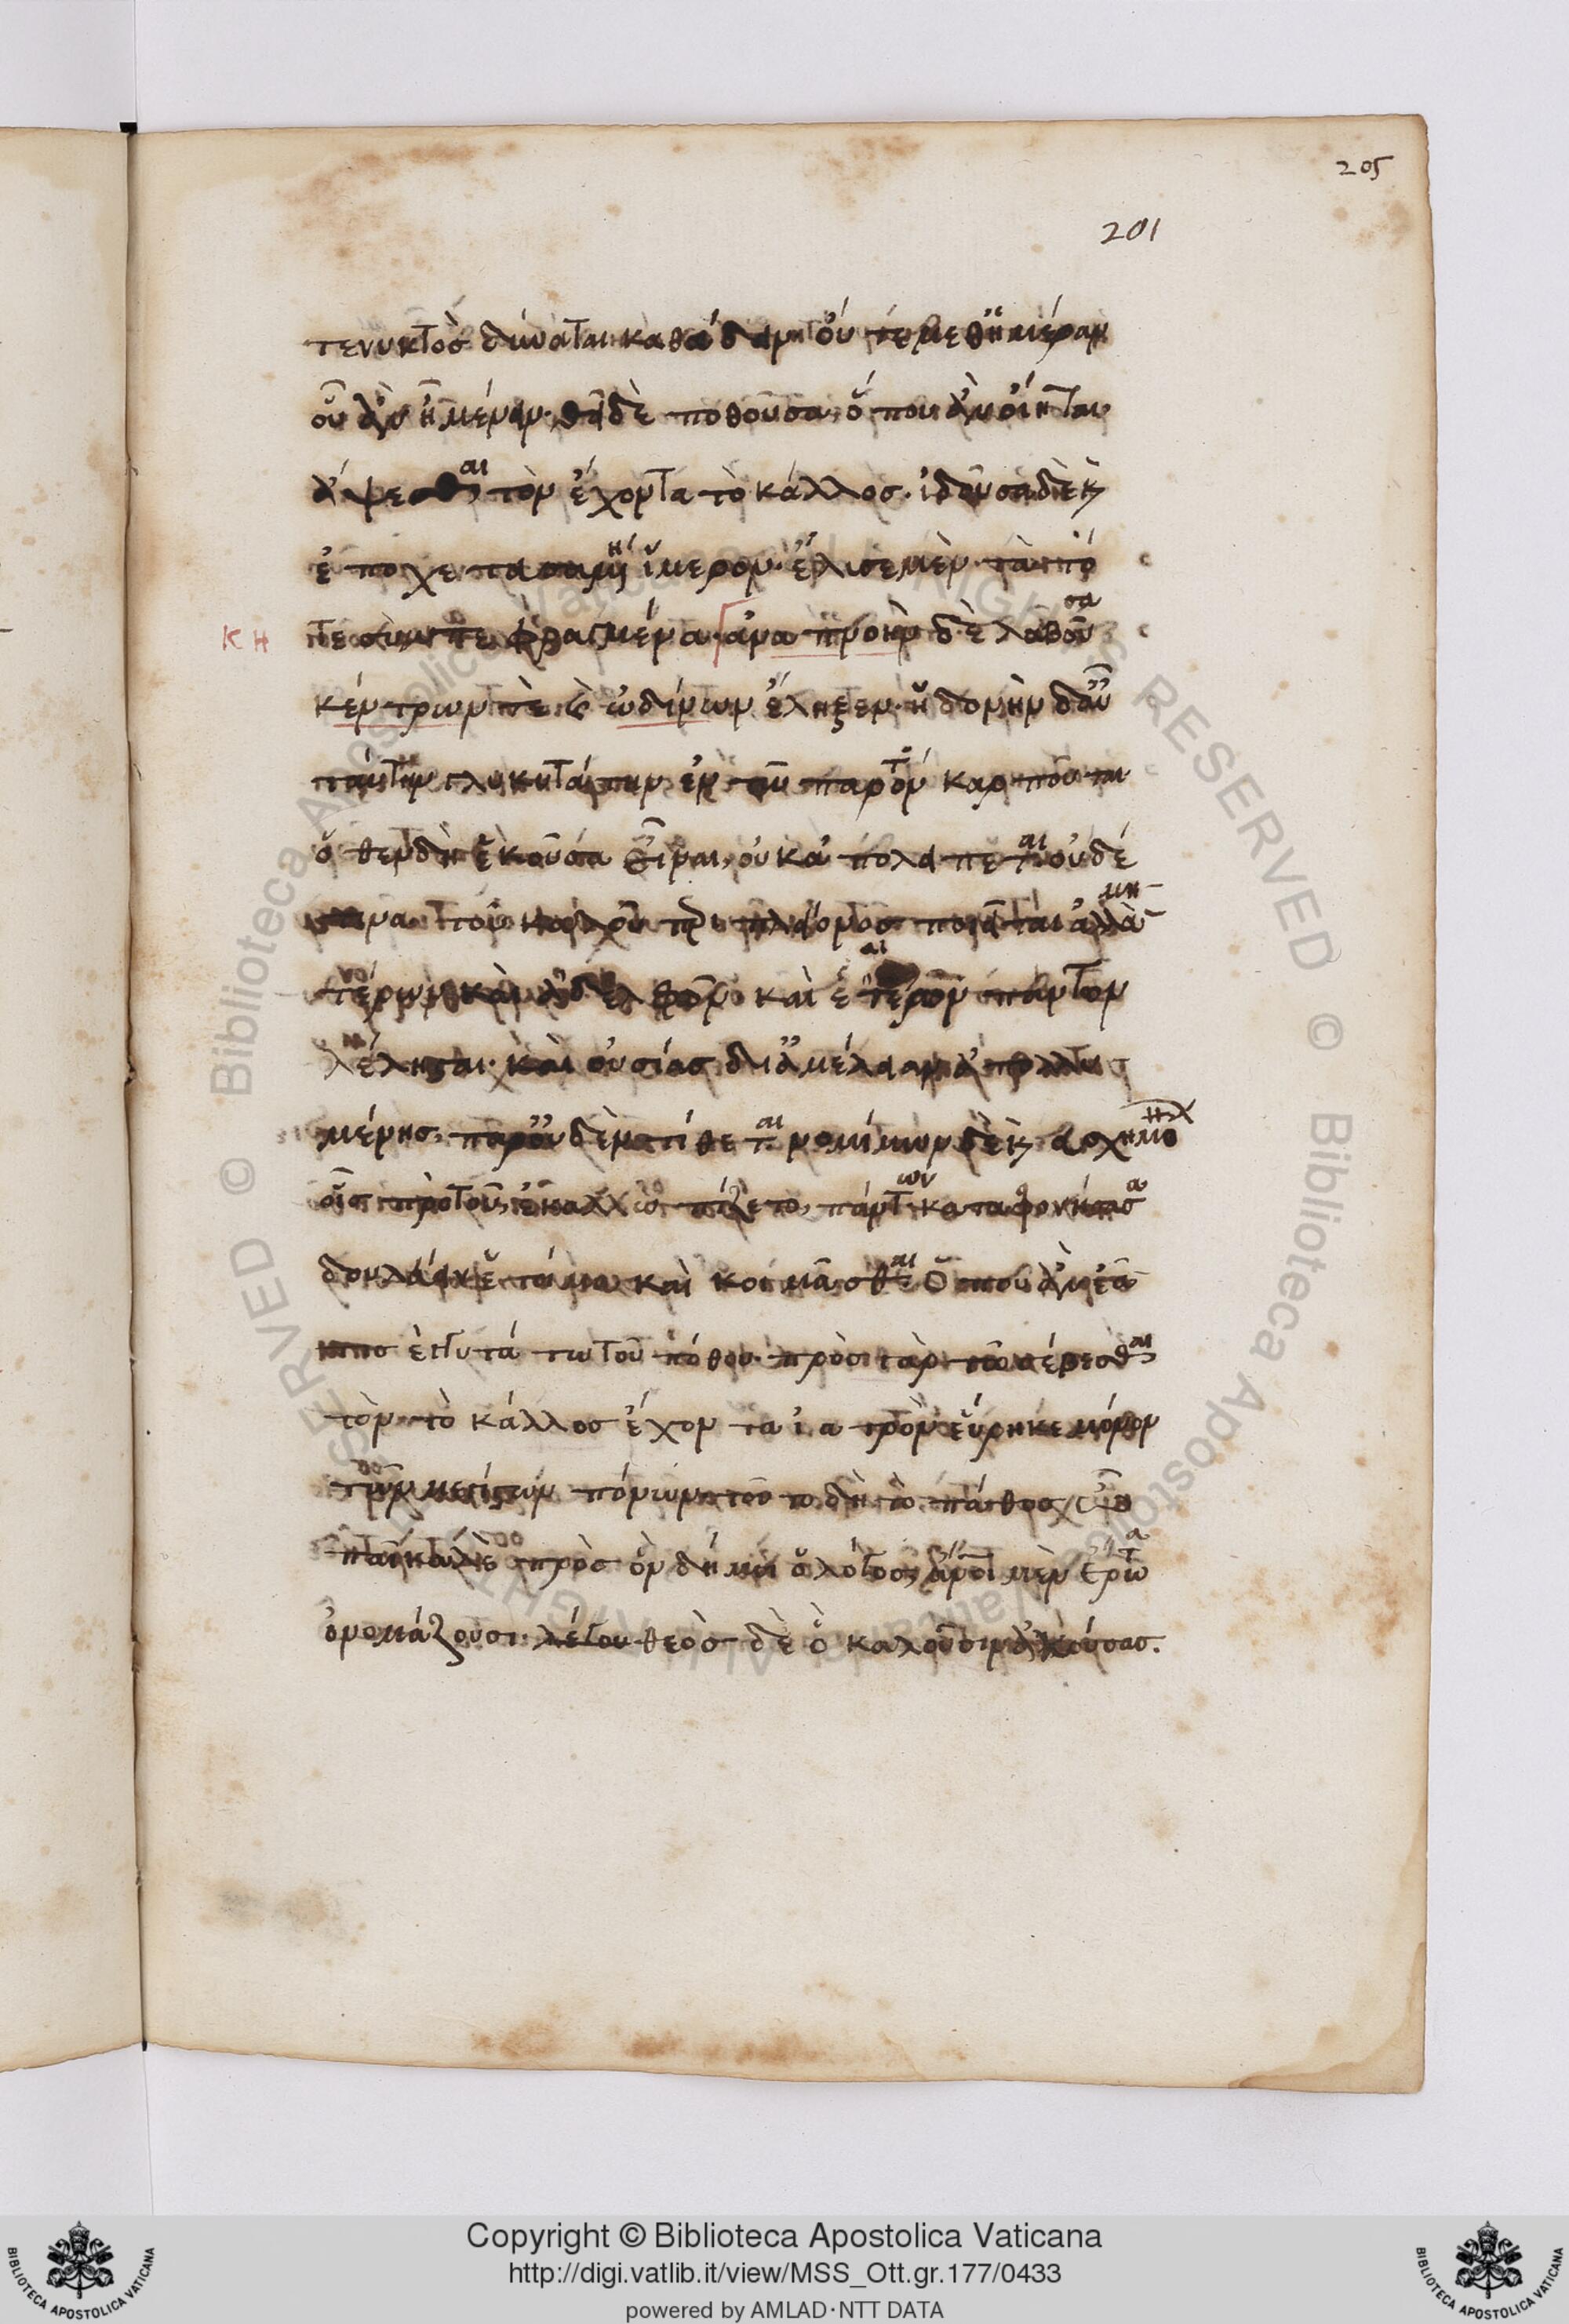 205
201
τε νυκτὸς δύναται καθεύδειν οὔτε μεθημέραν
οὗ ἂν ἦ μένειν. θεῖ δὲ ποθοῦσα ὅπου ἂν οἴηται
ὄψεσθαι τὸν ἔχοντα τὸ κάλλος. ἰδοῦσα δὲ κ
ἐποχετευσαμένη ἵμερον. ἔλυσε μὲν τὰ τό
κη τε συμπεφραγμένα. ἀναπνοὴν δὲ λαβοῦσα
κέντρων τὲ κ ὠδίνων ἔληξεν. ἡδονὴν δ' αὖ
ταύτην γλυκυτάτην ἐν τῷ παρόντι καρποῦται
ὅθεν δὴ ἑκοῦσα εἶναι οὐκ ἀπολείπεται οὐδέ
τινα τοῦ καλοῦ περὶ πλέονος ποιεῖται ἀλλὰ μη
τέρων καὶ ἀδελφῶν καὶ ἑταίρων πάντων
λέλησται. καὶ οὐσίας δι' ἀμέλειαν ἀπολλυ
μένης παρ' οὐδὲν τίθεται νομίμων δὲ κ εὐσχημο
οἷς πρὸ τοῦ ἐκαλλωπίζετο, πάντων καταφρονήσασα
δουλεύειν ἑτοίμα καὶ κοιμᾶσθαι ὅπου ἂν ἐᾶ
τις ἐγγυτάτω τοῦ πόθου. πρὸς γὰρ τῷ σέβεσθαι
τὸν τὸ κάλλος ἔχοντα ἰατρὸν εὕρηκε μόνον
τῶν μεγίστων πόνων τοῦτο δὴ τὸ πάθος ὦ
παῖ καλὲ πρὸς ὃν δή μοι ὁ λόγος ἄνθρωποι μὲν ἔρωτα
ὀνομάζουσι. λέγου θεοὶ δὲ ὃ καλοῦσιν ἀκούσας.
Copyright © Biblioteca Apostolica Vaticana
http://digi.vatlib.it/view/MSS_Ott.gr.177/0433
powered by AMLAD·NTT DATA